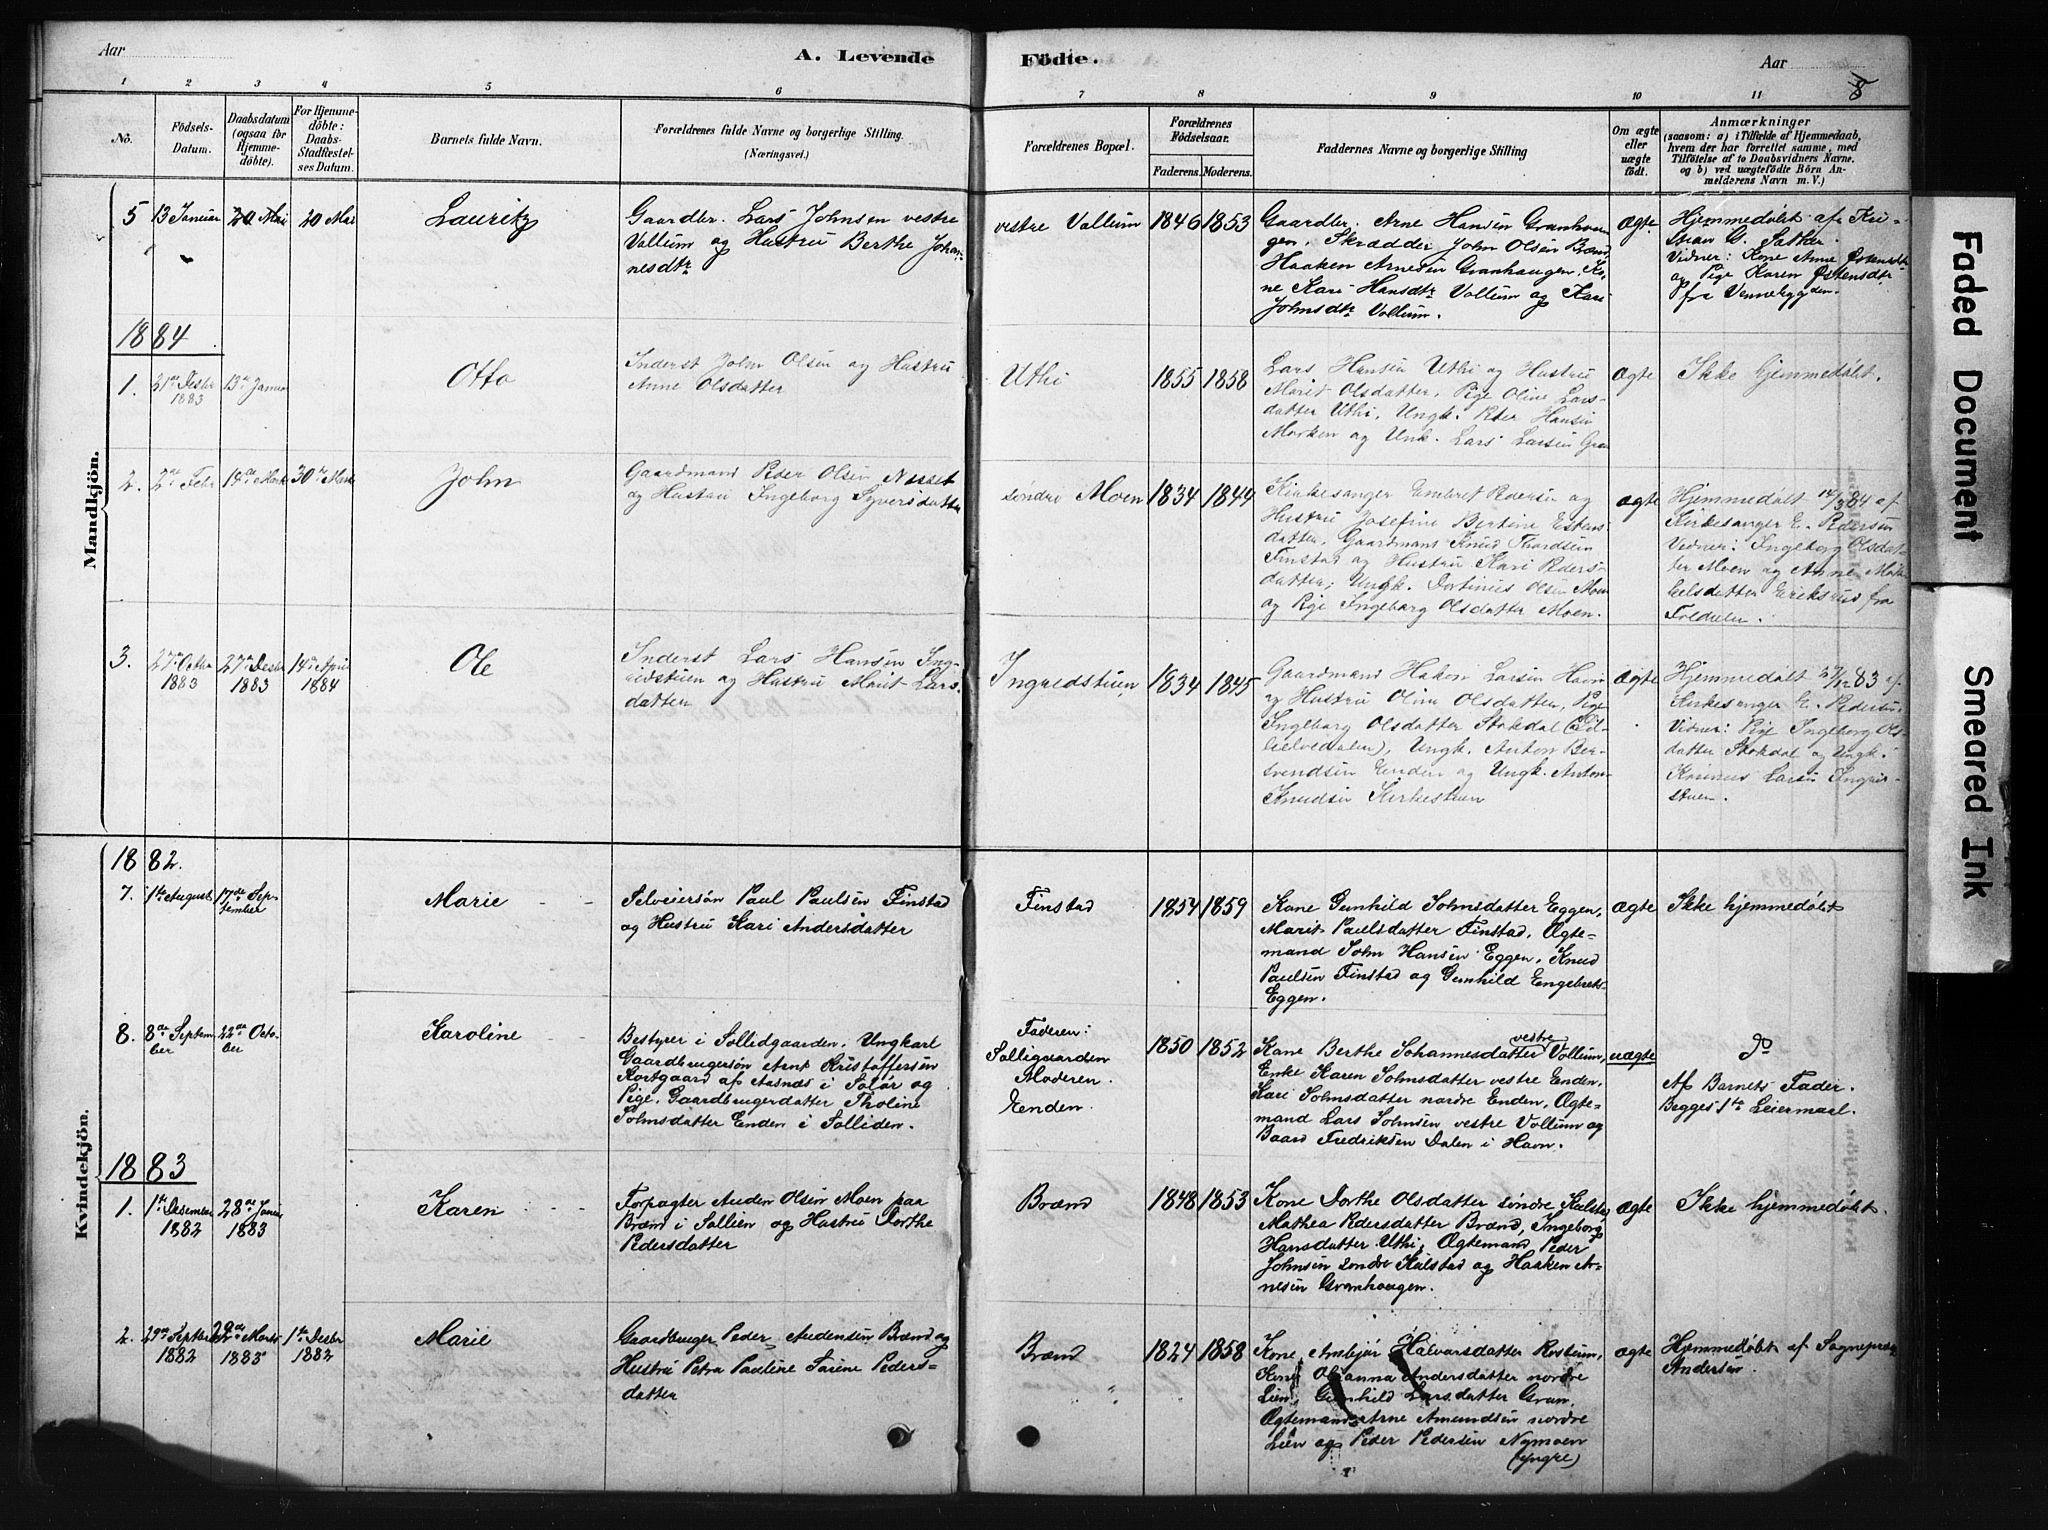 Aar
A. Levende
Födte.
Aar
8
1 2 3 4 5 6 7 8 9 10 11
No.
Födsels-Datum.
Daabsdatum (ogsaa for Hjemmedöbte).
For Hjemmedöbte: Daabs-Stadfæstelses Datum.
Barnets fulde Navn.
Forældrenes fulde Navne og borgerlige Stilling.
(Næringsvei.)
Forældrenes Bopæl.
Forældrenes Födselsaar.
Faderens. Moderens.
Faddernes Navne og borgerlige Stilling
Om ægte eller uægte födt.
Anmærkninger
(saasom: a) i Tilfælde af Hjemmedaab,
hvem der har forrettet samme, med
Tilföielse af to Daabsvidners Navne.
og b) ved uægtefödte Börn Anmelderens Navn m. V.)
Mandkjön.
5 13 Januar 20 Mai 20 Mai
Lauritz
Gaardbr. Lars Johnsen vestre
Vollum og Hustru Berthe Johan-
nesdtr
vestre Vollum
1846 1853
Gaardbr. Arne Hansen Granhau-
gen, Skrædder John Olsen Brænd,
Haaken Arnesen Granhaugen, Ko-
ne Kari Hansdtr Vollum og Kari
Johnsdtr Vollum.
Ægte
Hjemmedøbt af Kri-
stian G. Sæther.
Vidner: Kone Anne Østensdtr
og Pige Karen Østensdtr
fra Vennebygden.
1884
1. 21de Desbr 1883 13de Januar
Otto
Inderst John Olsen og Hustru
Anne Olsdatter
Uthi
1855 1858
Lars Hansen Uthi og Hustru
Marit Olsdatter, Pige Oline Lars-
datter Uthi, Ungk. Peder Hansen
Morken og Unk. Lars Larsen Gran
Ægte
Ikke hjemmedøbt.
2. 2de Febr 14de Marts 30te Marts
John
Gaardmand Peder Olsen Nesset
og Hustru Ingeborg Syversdatter
søndre Moen
1834 1844
Kirkesanger Embret Pedersen og
Hustru Josefine Bertine Estens-
datter, Gaardmand Knud Thordsen
Finstad og Hustru Kari Peders-
datter; Ungk. Dortinus Olsen Moen
og Pige Ingeborg Olsdatter Moen.
Ægte
Hjemmedøbt 14/3 84 af
Kirkesanger E. Pedersen
Vidner: Ingeborg Olsdat-
ter Moen og Anne Mik-
kelsdatter Eriksrud fra
3. 27de Octbr 1883 27de Desbr 1883 14de April 1884
Ole
Inderst Lars Hansen Ing-
ridstuen og Hustru Marit Lars-
datter
Ingredstuen
1834 1845
Gaardmand Haken Larsen Havn
og Hustru Oline Olsdatter, Pige
Ingeborg Olsdatter Stokdal (Ed-
helvedalen), Ungk. Anton Ber-
svendsen Enden og Ungk. Anton
Knudsen Kirkestuen
Ægte
Hjemmedøbt 27/12 83 af
Kirkesanger E. Pedersen.
Vidner: Pige Ingeborg Ols-
datter Stokdal og Ungk.
Larsen Ingrid-
stuen.
Kvindekjön.
1882.
7. 1te August 17de September
Marie
Selveiersøn Paul Paulsen Finstad
og Hustru Kari Andersdatter
Finstad
1854 1859
Kone Gunhild Johnsdatter Eggen,
Marit Paulsdatter Finstad, Ægte-
mand John Hansen Eggen, Knud
Paulsen Finstad og Gunhild Engebrets-
Eggen.
Ægte
Ikke hjemmedøbt
8. 8de September 22de October
Karoline
Bestyrer i Sollidgaarden, Ungkarl
Gaardbrugersøn Arnt Kristoffersen
Kortgaard af Aasnæs i Solør og
Pige, Gaardbrugerdatter Tholine
Johnsdatter Enden i Solliden.
Faderen:
Solligaarden
Moderen.
Enden.
1850 1852
Kone Berthe Johannesdatter vestre Vollum,
Enke Karen Johnsdatter vestre Enden,
Kari Johnsdatter nordre Enden, Ægte-
mand Lars Johnsen vestre Vollum og
Baard Fredriksen Dalen i Havn.
uægte
do
Af Barnets Fader.
Begges 1te Leiermaal.
1883
1. 1te Desember 1882 28de Januar 1883
Karen
Forpagter Auden Olsen Moen paa
Brænd i Sollien og Hustru Dorthe
Pedersdatter
Brænd
1848 1853
Kone Dorthe Olsdatter søndre Kulstad,
Mathea Pedersdatter Brænd, Ingeborg
Hansdatter Uthi, Ægtemand Peder
Johnsen søndre Kulstad og Haaken Ar-
nesen Granhaugen.
Ægte
Ikke hjemmedøbt.
2. 29de Septbr 1882 28de Marts 1883 1te Desbr 1882
Marie
Gaardbruger Peder Audensen Brænd og
Hustru Petra Pauline Sørine Peders-
datter
Brænd
1824 1858
Kone Ambjør Halvorsdatter Rostuen,
Kone Johanna Andersdatter nordre
Lien, Gunhild Larsdatter Gran,
Ægtemand Arne Amundsen nordre
Lien og Peder Pedersen Nymoen
(yngre)
Ægte
Hjemmedøbt af Sognepræst
Andersen.
Faded Document
Smeared Ink